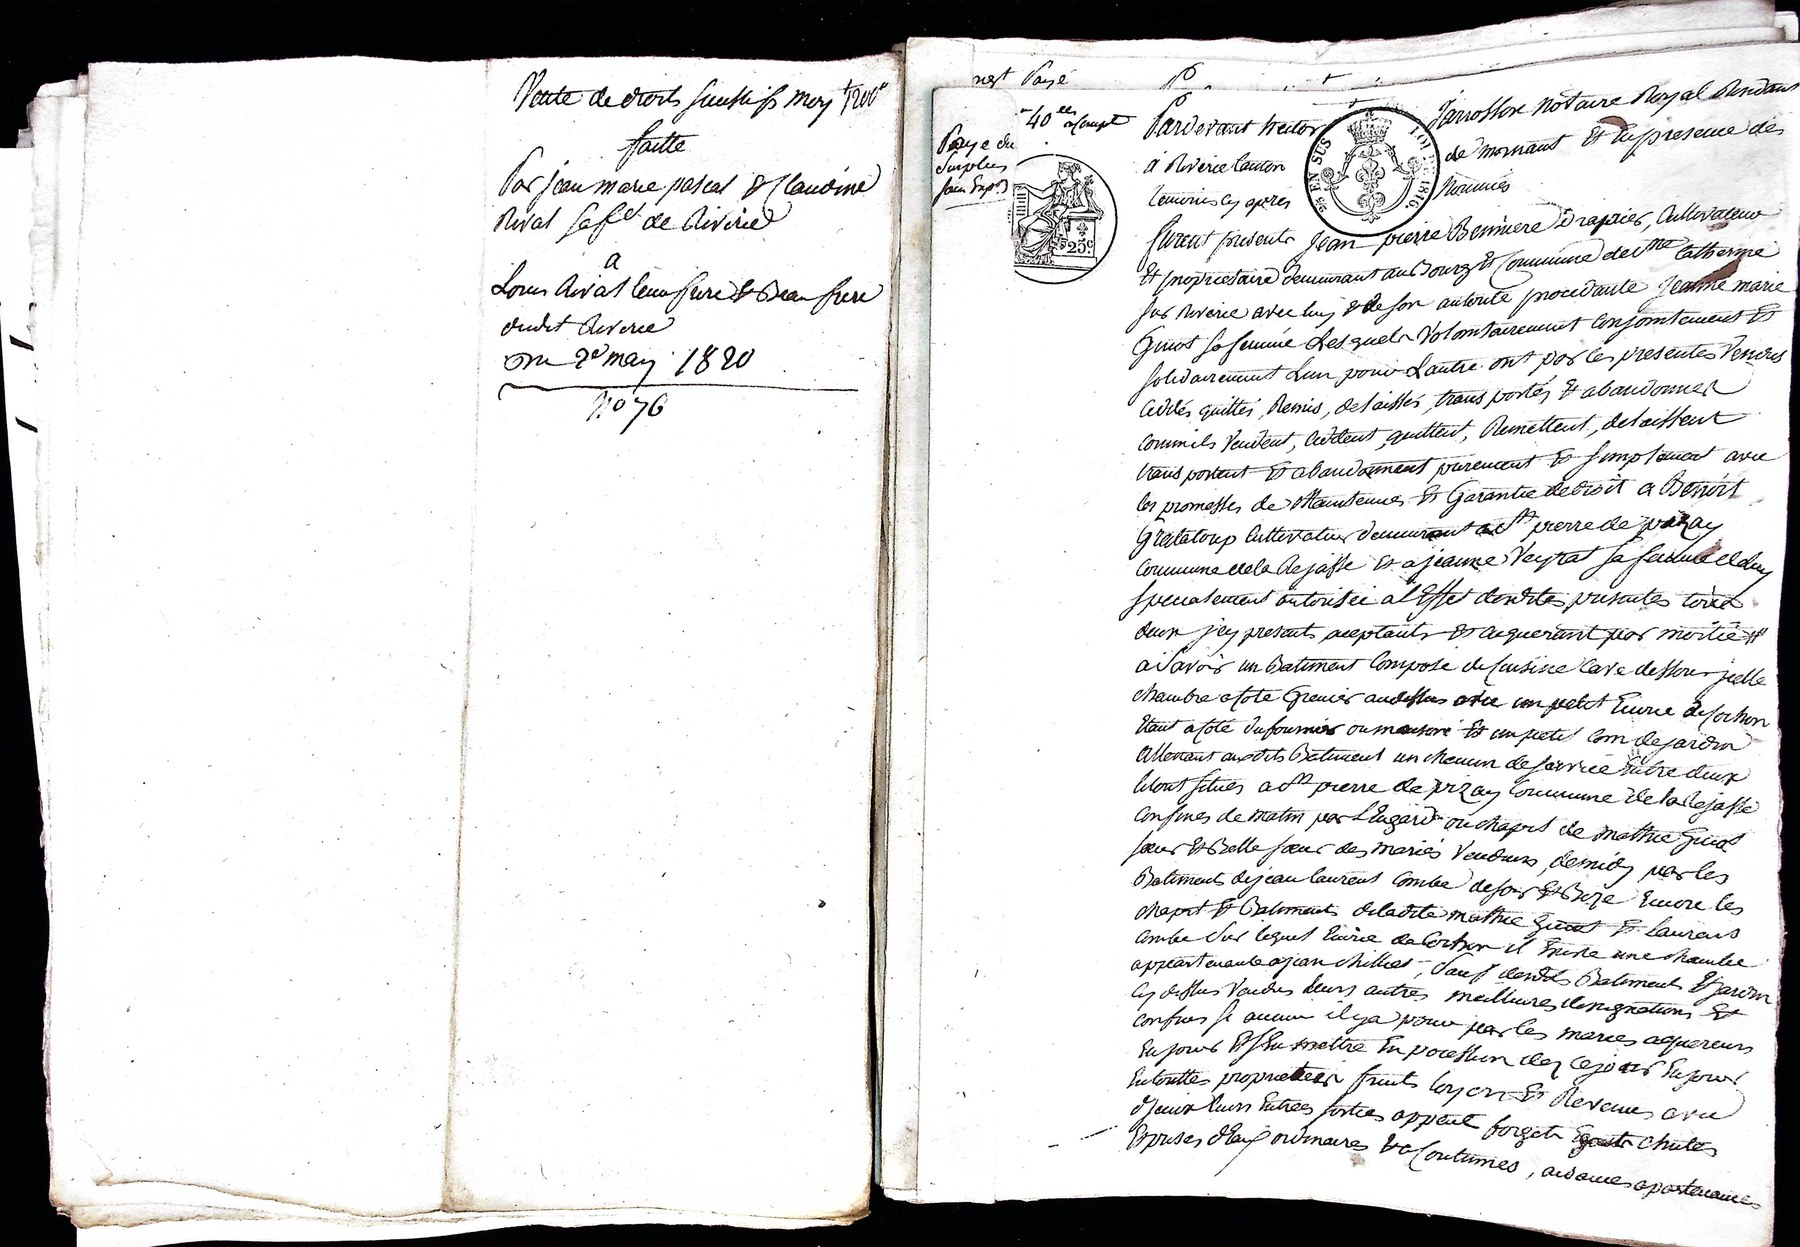 Vente de droits Successifs moy 1200#
faitte
Par jean marie pascal & Claudine
Rival sa fe de Riverie
a
Louis Rival leur frere & Beau frere
dudit Riverie
Du 2e may 1820
No 76
Payé
40 acompte
Paye du
Surplus
EN SUS
LOI DE 1816.
25c
Pardevant hector Jarrosson Notaire Royal Residant
à Riverie Canton de mornant Et En presence des
temoins cy apres Nommés
furent presents Jean pierre Benniere Drapier, Cultivateur
Et proprietaire demeurant au Bourg Et Commune de Ste Catherine
sur Riverie avec luy & de son autorité procedante Jeanne marie
Guiot sa femme Lesquels Volontairement Conjointement Et
solidairement L'un pour L'autre ont par les presentes Vendus
Cédés quittés, Remis, delaissés, transportés & abandonnés
comm'ils Vendent, Cedent, quittent, Remettent, delaissent
transportent Et abandonnent purement Et simplement avec
les promesses de Maintenue Et Garantie de droit a Benoit
Grataloup Cultivateur demeurant a St pierre de pizay
Commune de la Rajasse Et a jeanne Veyrat sa femme de luy
specialement autorisée a l'Effet desdites presentes tous
deux jcy presents acceptants Et acquerant par moitié
a Savoir un Batiment Composé de Cuisine Cave dessous jcelle
chambre a coté Grenier au dessus avec un petit Ecurie de Cochon
Etant a coté du fournier ou masure Et un petit Coin de jardin
attenant auxdits Batiment un chemin de service Entre deux
le tout situés a St pierre de pizay Commune de la Rajasse
Confines de matin par L'hugard ou chapit de mathie Guiot
soeur Et Belle soeur des mariés Vendeurs, de midy par les
Batiments de jean laurent Combe de soir Et Bize Encore les
chapit Et Batiments de ladite mathie Guiot Et laurens
Combe Sur lequel Ecurie de Cochon il Existe une chambe
appartenante a jean chillies, Sauf desdits Batiments Et jardin
cy dessus Vendus leurs autres meilleures designations Et
confines si aucun il y a pour par les maries aquereurs
En jouir Et s'En mettre En possession dez ce jour En jouir
En touttes proprietées fruits loyers Et Revenus avec
d'jceux leurs Entrées sorties appent forget Egouts chutes
Et prises d'Eaux ordinaires & a Coutumés, aisances apartenances